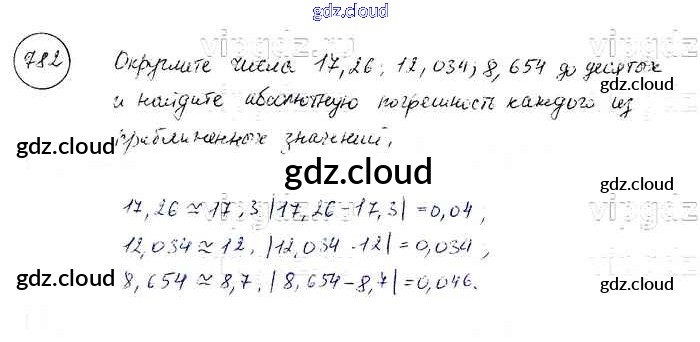 gdz.cloud
782 Округлите числа 17,26; 12,034; 8,654 до десятых
и найдите абсолютную погрешность каждого из
приближенных значений.
gdz.cloud
gdz.cloud
gdz.cloud
17,26 ≈ 17,3 |17,26 - 17,3| = 0,04;
12,034 ≈ 12, |12,034 - 12| = 0,034;
8,654 ≈ 8,7, |8,654 - 8,7| = 0,046.
gdz.cloud
gdz.cloud